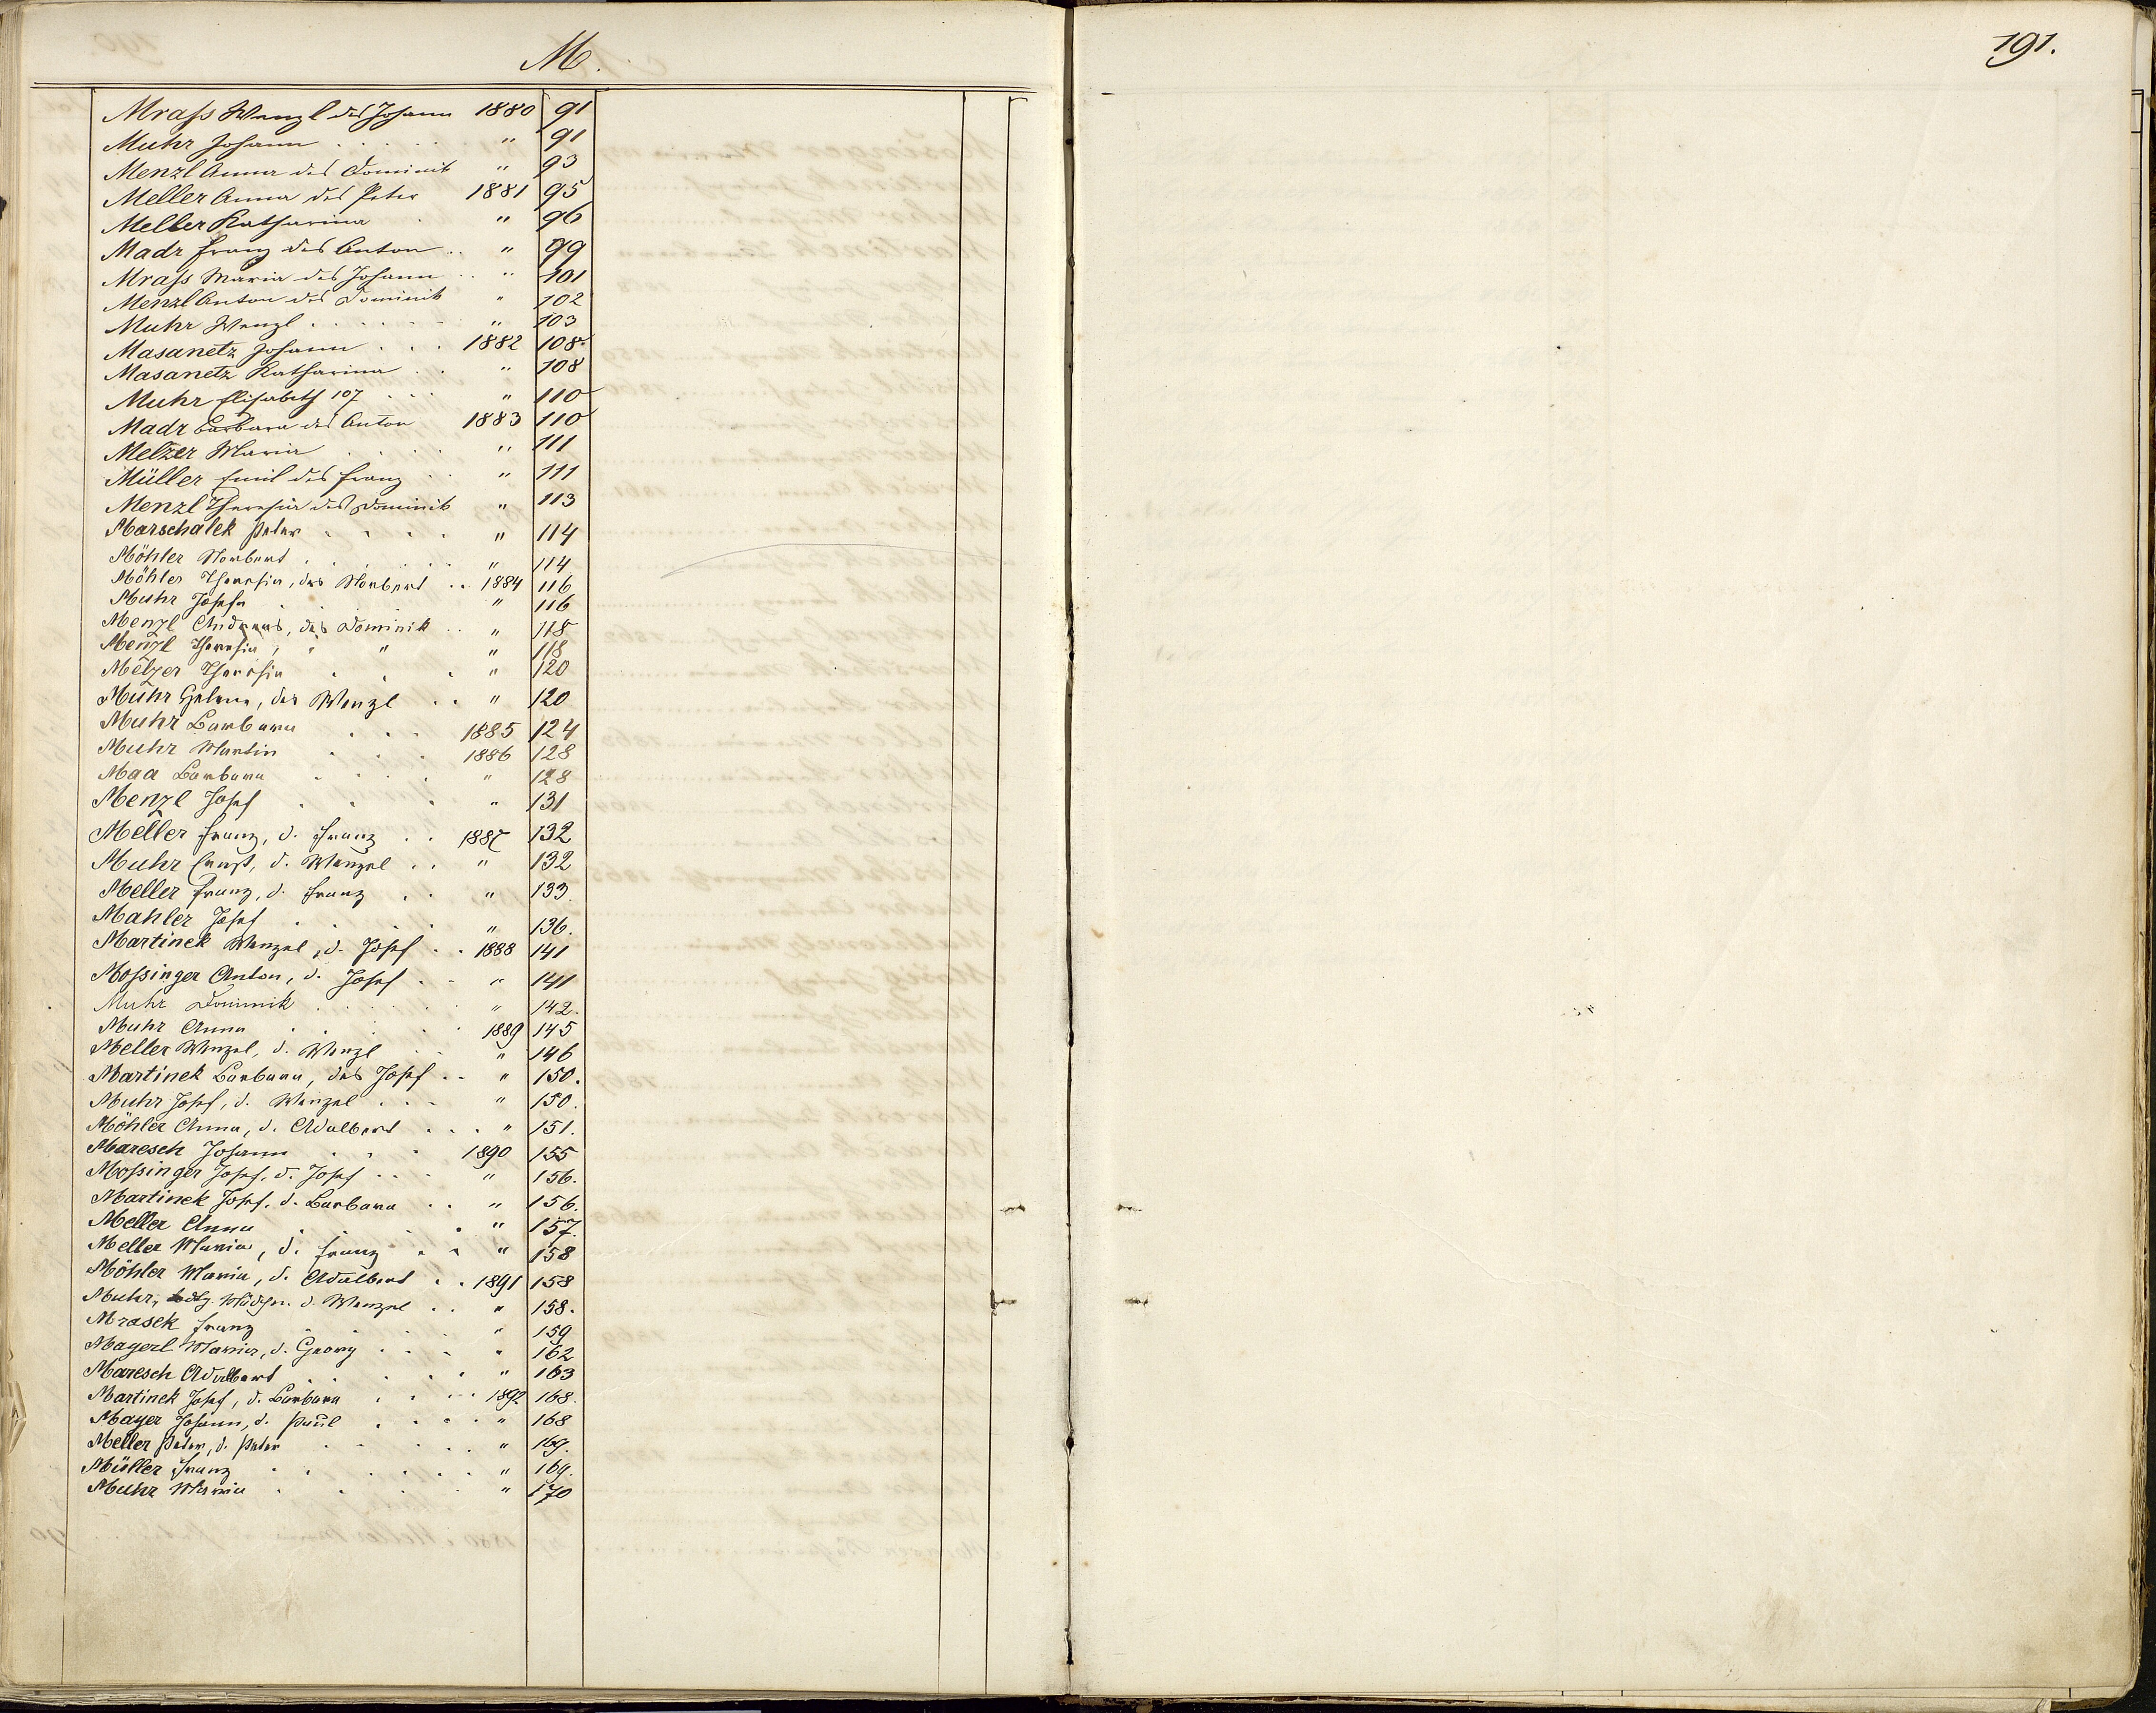 M.
191.
Mraſs Wenzl des Johann 1880 91
Muhr Johann . . . . . " 91
Menzl Anna des Dominik " 93
Meller Anna des Peter 1881 95
Meller Katharina . " 96
Madr Franz des Anton .. " 99
Mraſs Maria des Johann .. " 101
Menzl Anton des Dominik " 102
Muhr Wenzl . . . . . " 103
Masanetz Johann . . . 1882 108
Masanetz Katharina . . " 108
Muhr Elisabeth 107 . . . " 110
Madr Barbara des Anton 1883 110
Melzer Maria . . . . " 111
Müller Emil des Franz . . " 111
Menzl Theresia des Dominik " 113
Marschalek Peter . . . . " 114
Möhler Norbert . . . . . " 114
Möhler Theresia, des Norbert .. 1884 116
Muhr Josefa . . . " 116
Menzl Andreas, des Dominik .. " 118
Menzl Theresia, " " " 118
Melzer Theresia . . . . " 120
Muhr Helena, des Wenzl . . " 120
Muhr Barbara . . . 1885 124
Muhr Martin . . . . 1886 128
Maa Barbara . . . . " 128
Menzl Josef . . . " 131
Meller Franz, d. Franz . . 1887 132
Muhr Ernst, d. Wenzel . . " 132
Meller Franz, d. Franz . . " 133.
Mahler Josef . . . . " 136.
Martinek Wenzel, d. Josef . . 1888 141
Moſsinger Anton, d. Josef . . " 141
Muhr Dominik . . . . . " 142.
Muhr Anna . . . . . 1889 145
Meller Wenzel, d. Wenzl . . " 146
Martinek Barbara, des Josef .. " 150.
Muhr Josef, d. Wenzel . . . " 150.
Möhler Anna, d. Adalbert . . . " 151.
Maresch Johann . . . 1890 155
Moſsinger Josef, d. Josef . . . " 156.
Martinek Josef, d. Barbara . . " 156.
Meller Anna . . . . " 157.
Meller Maria, d. Franz . . " 158
Möhler Maria, d. Adalbert . . 1891 158
Muhr, Mädchen d. Wenzel . . " 158.
Mrasek Franz . . . . " 159
Mayerl Maria, d. Georg . . . " 162
Maresch Adalbert . . . . " 163
Martinek Josef, d. Barbara . . . 1892 168.
Mayer Johann, d. Paul . . . . " 168
Meller Peter, d. Peter . . . . . " 169.
Müller Franz . . . . . " 169.
Muhr Maria . . . . " 170